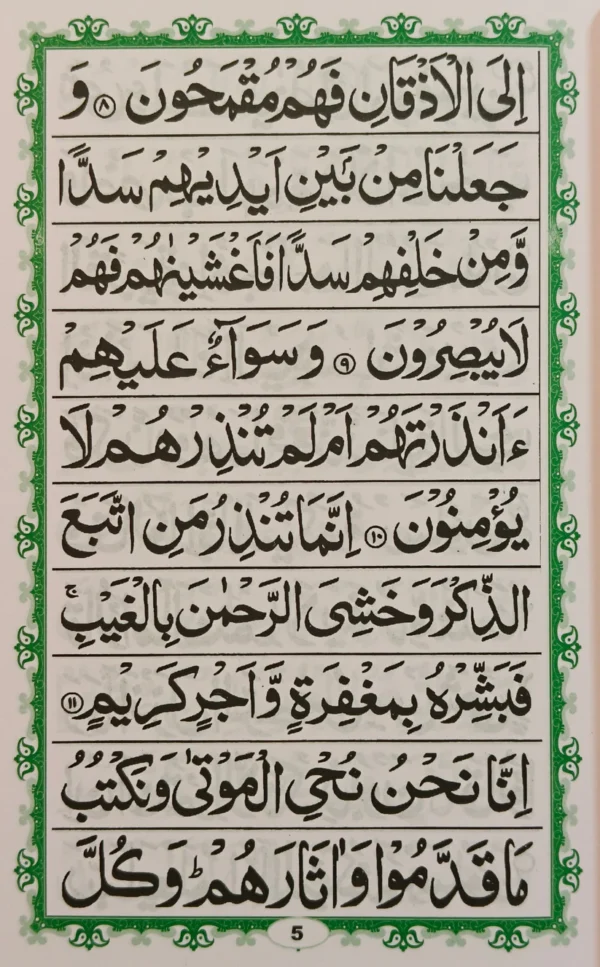 اِلَى الْاَذْقَانِ فَهُمْ مُّقْمَحُوْنَ ⑧ وَ
جَعَلْنَا مِنْۢ بَيْنِ اَيْدِيْهِمْ سَدًّا
وَّمِنْ خَلْفِهِمْ سَدًّا فَاَغْشَيْنٰهُمْ فَهُمْ
لَا يُبْصِرُوْنَ ⑨ وَسَوَآءٌ عَلَيْهِمْ
ءَاَنْذَرْتَهُمْ اَمْ لَمْ تُنْذِرْهُمْ لَا
يُؤْمِنُوْنَ ⑩ اِنَّمَا تُنْذِرُ مَنِ اتَّبَعَ
الذِّكْرَ وَخَشِىَ الرَّحْمٰنَ بِالْغَيْبِ ۚ
فَبَشِّرْهُ بِمَغْفِرَةٍ وَّاَجْرٍ كَرِيْمٍ ⑪
اِنَّا نَحْنُ نُحْىِ الْمَوْتٰى وَنَكْتُبُ
مَا قَدَّمُوْا وَاٰثَارَهُمْ ؕ وَكُلَّ
5